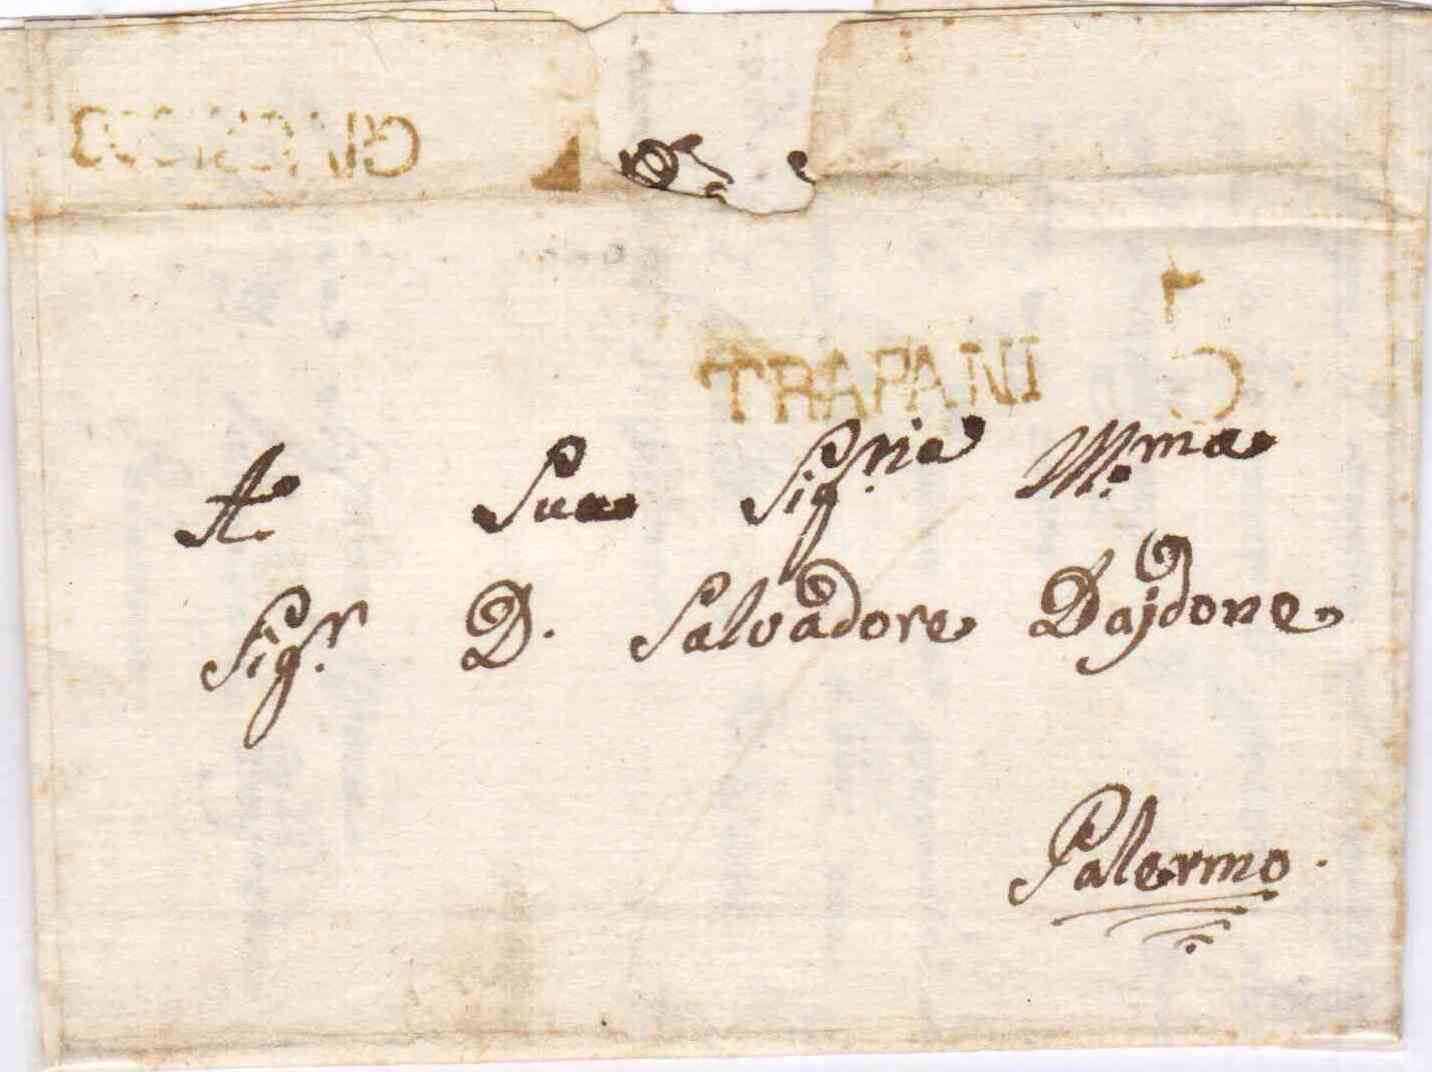 TRAPANI
A Sua Sig.ria M.ma
Sig.r D. Salvadore Dajdone
Palermo.